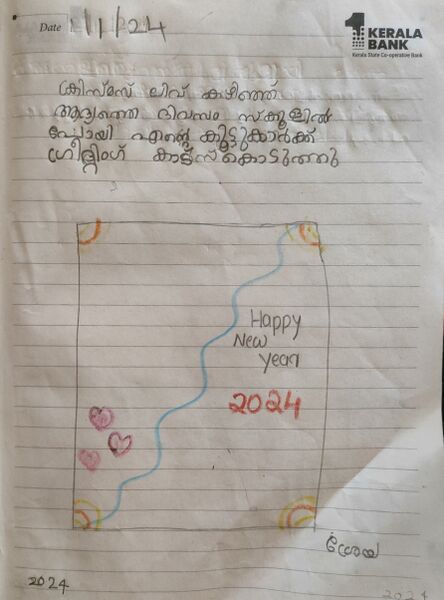 Date 1/1/2024
KERALA
BANK
Kerala State Co-operative Bank
ക്രിസ്മസ് ലീവ് കഴിഞ്ഞ്
ആദ്യത്തെ ദിവസം സ്കൂളിൽ
പോയി എന്റെ കൂട്ടുകാർക്ക്
ഗ്രീറ്റിംഗ് കാർഡ്സ് കൊടുത്തു
Happy
New
Year
2024
ശ്രേയ
2024
2024